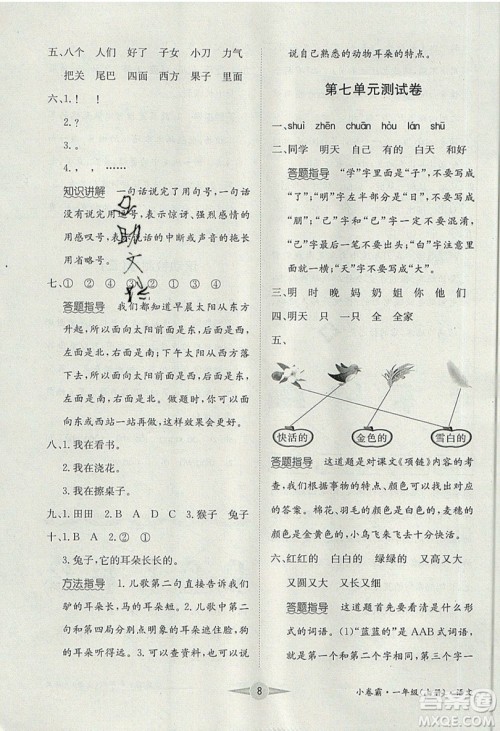 五、八个 人们 好了 子女 小刀 力气
把关 尾巴 四面 西方 广告 里面
六、1.! !
2.?
3.。
4.，……
知识讲解 一句话说完了用句号，一句话
没有说完用逗号，表示惊讶、强烈感情的
用感叹号，表示说话的中断或声音的拖长
用省略号。
七、① ② ④ ③ ① ② ③ ④
答题指导 我们都知道早晨太阳从东方
升起，所以面向太阳前面是东，后面是西，
左面是北，右面是南；下午太阳在西方落
下，所以面向太阳前面是西，后面是东，左
面是南，右面是北。做题时，可以想象面
向东站一站再向西站一站，就会很容易写
出答案了。
八、1.我在看书。
2.我在浇花。
3.我在擦桌子。
九、1.田田 2.B A D C 3.猴子 兔子
十、1.B A 2.② ①
3.兔子，它的耳朵长长的。
方法指导 1.儿歌第二句直接告诉我们
驴的耳朵长，马的耳朵短。2.儿歌的第三
句和第四句分别点明象的耳朵和猪的耳
朵像什么。3.可以查资料，也可以直接
说自己熟悉的动物耳朵的特点。
第七单元测试卷
一、shuǐ zhēn chuān hóu lán shū
二、同学 明天 自己 有的 白天 和好
答题指导 “学”字里面是“子”，不要写
成“了”；“明”字左半部分是“日”，不要写
成“朋”；“己”和“已”字一定不要混淆，
“己”字不要出头；“白”字里面一横，不要
写成两横；“天”字不要写成“大”。
三、明 时 晚 妈 奶 姐 你 他 们
四、明天 只 一只 全 全家
五、
快活的 金色的 雪白的
答题指导 这道题是对课文《项链》内容的考
查，根据每种事物的特点、颜色可以选出
相应的词语。浪花和羽毛的颜色是雪白的，麦穗的
颜色是金黄色的，小鸟飞来飞去十分快活。
六、红红的 白白的 绿绿的 又高又大
又圆又大 又长又细
答题指导 这道题首先要看清是什么形
式的词语。(1)“蓝蓝的”是AAB式词语，
就是第一个字和第二个字相同，第三个字一
8
小卷霸·一年级(上册)·语文
答案圈
MXQE.COM